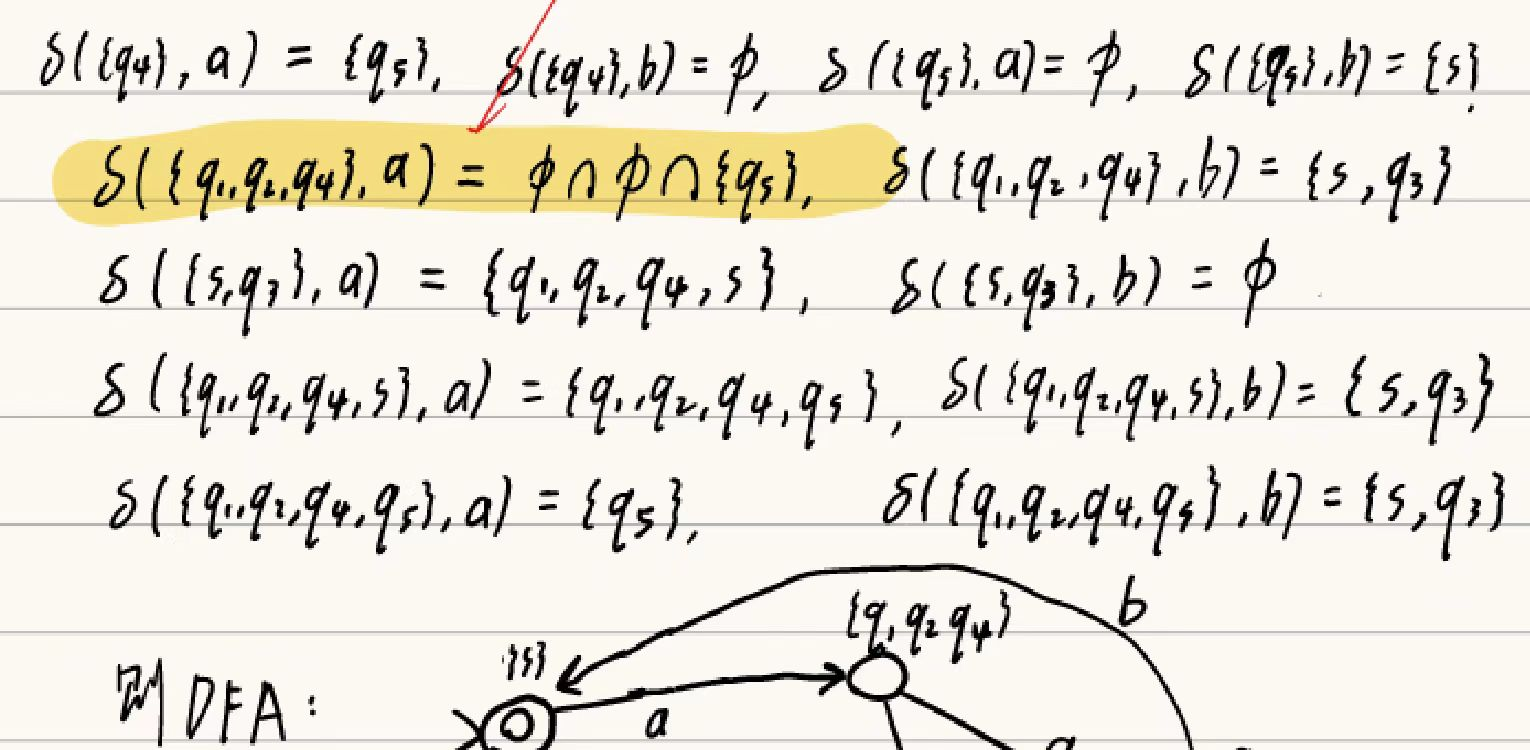 δ({q4},a) = {q5}, δ({q4},b) = ϕ, δ({q5},a) = ϕ, δ({q5},b) = {s}
δ({q1,q2,q4},a) = ϕ∩ϕ∩{q5}, δ({q1,q2,q4},b) = {s,q3}
δ({s,q3},a) = {q1,q2,q4,s}, δ({s,q3},b) = ϕ
δ({q1,q2,q4,s},a) = {q1,q2,q4,q5}, δ({q1,q2,q4,s},b) = {s,q3}
δ({q1,q2,q4,q5},a) = {q5}, δ({q1,q2,q4,q5},b) = {s,q3}
b
{q1 q2 q4}
{s}
则DFA:
a